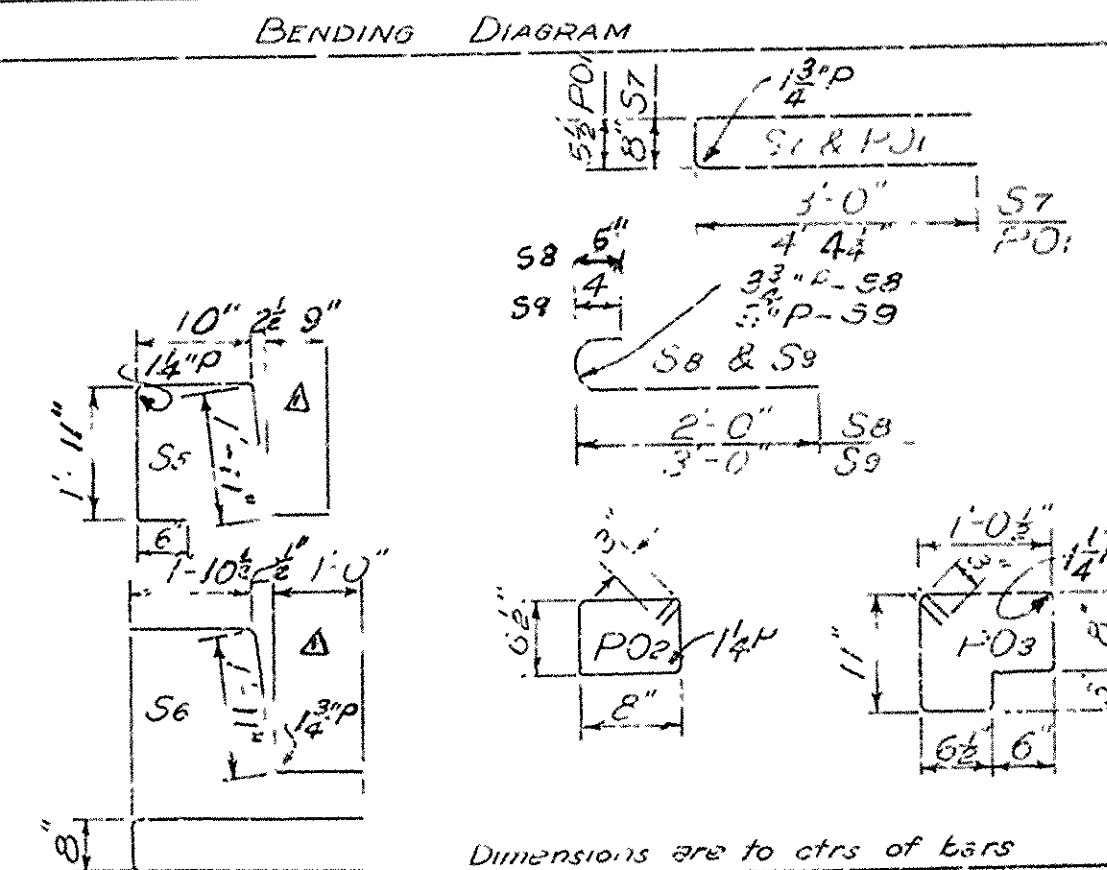 BENDING DIAGRAM
5½" PO1
8" S7
1¾"P
S1 & PO1
3'-0" S7
4' 4¼" PO1
S8
S9 4
3¾"P-S8
"P-S9
S8 & S9
2'-0" S8
3'-0" S9
10" 2½ 9"
1¼"P
1'-11"
S5
1
6"
1'-10½ ½" 1'-0"
S6
1
1¾"P
8"
3"
6½"
PO2
1¼P
8"
1'-0½"
3"
1¼P
11"
PO3
8"
6½" 6"
Dimensions are to ctrs of bars